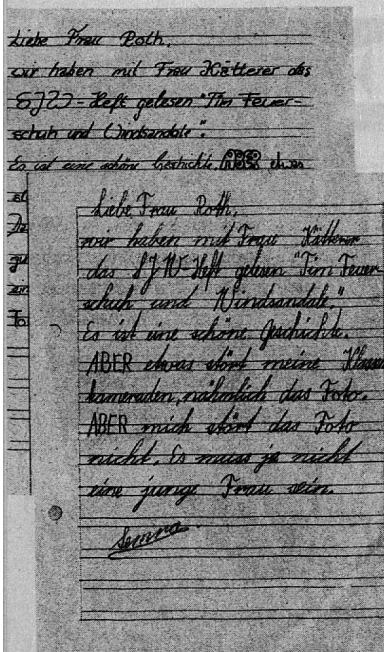 Liebe Frau Roth,
wir haben mit Frau Kätterer das
SJW-Heft gelesen "Tim Feuer-
schuh und Windsandale".
Es ist eine schöne Geschichte etwas
Liebe Frau Roth,
wir haben mit Frau Kätterer
das SJW Heft gelesen "Tim Feuer
schuh und Windsandale."
Es ist eine schöne Geschichte.
ABER etwas stört meine Klassen
kameraden, nähmlich das Foto.
ABER mich stört das Foto
nicht. Es muss ja nicht
eine junge Frau sein.
Semra